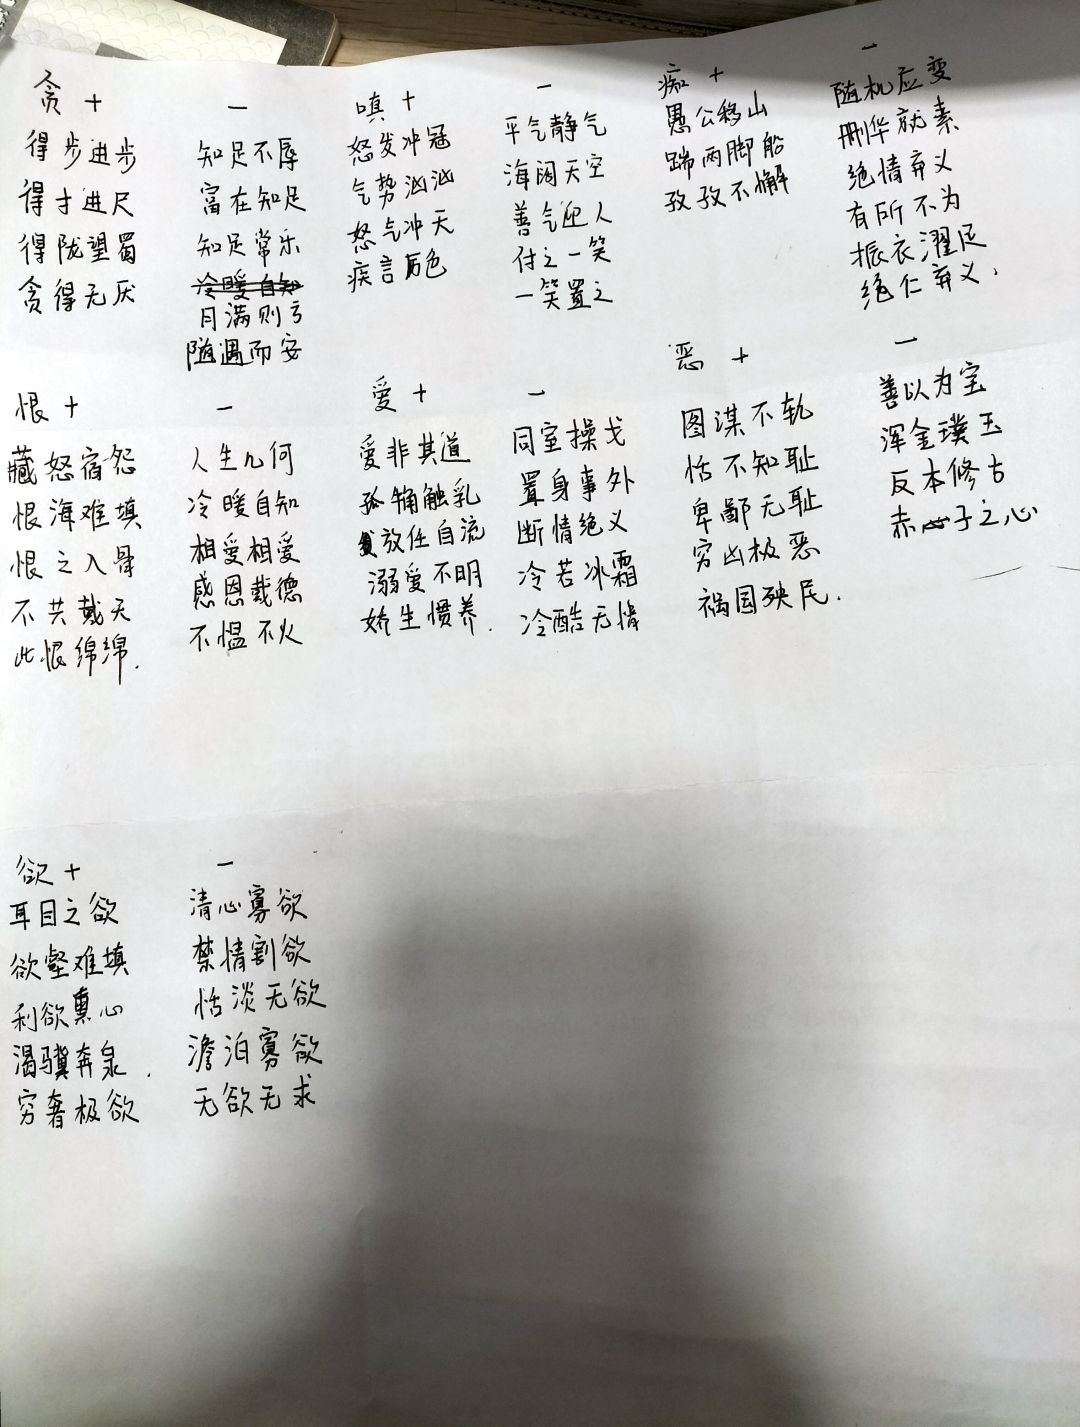 贪 +
得步进步
得寸进尺
得陇望蜀
贪得无厌
—
知足不辱
富在知足
知足常乐
冷暖自知
月满则亏
随遇而安
嗔 +
怒发冲冠
气势汹汹
怒气冲天
疾言厉色
—
平气静气
海阔天空
善气迎人
付之一笑
一笑置之
痴 +
愚公移山
踹两脚船
孜孜不懈
—
随机应变
删华就素
绝情弃义
有所不为
振衣濯足
绝仁弃义、
恨 +
藏怒宿怨
恨海难填
恨之入骨
不共戴天
此恨绵绵.
—
人生几何
冷暖自知
相爱相爱
感恩戴德
不愠不火
爱 +
爱非其道
孤犊触乳
放任自流
溺爱不明
娇生惯养.
—
同室操戈
置身事外
断情绝义
冷若冰霜
冷酷无情
恶 +
图谋不轨
恬不知耻
卑鄙无耻
穷凶极恶
祸国殃民.
—
善以为宝
浑金璞玉
反本修古
赤子之心
欲 +
耳目之欲
欲壑难填
利欲熏心
渴骥奔泉.
穷奢极欲
—
清心寡欲
禁情割欲
恬淡无欲
澹泊寡欲
无欲无求